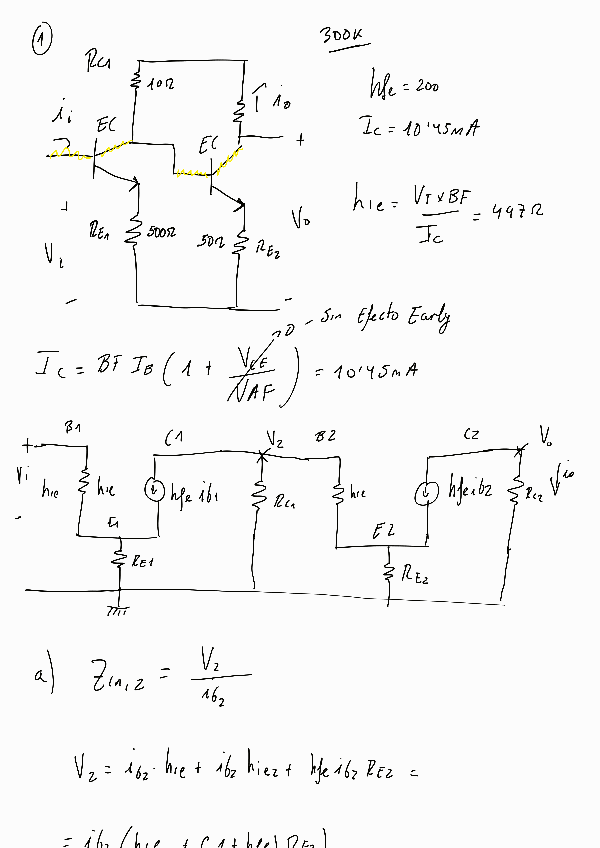 1
300K
RC1
10Ω
io
hfe = 200
ii
EC
EC
+
IC = 10'45mA
+
RE1
500Ω
50Ω
RE2
Vo
hie = VT x BF / IC = 497Ω
Vi
-
-
0 - Sin Efecto Early
IC = BF IB (1 + VCE / VAF) = 10'45mA
B1
C1
V2
B2
C2
Vo
+
Vi
hie
hie
hfe ib1
RC1
hie
hfe ib2
RC2
io
-
E1
E2
RE1
RE2
a) Zin,2 = V2 / ib2
V2 = ib2 · hie + ib2 hie2 + hfe ib2 RE2 =
= ib2 (hie + (1+hfe) RE2)